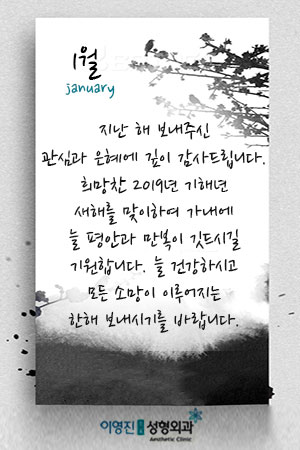 1월
january
지난 해 보내주신
관심과 은혜에 깊이 감사드립니다.
희망찬 2019년 기해년
새해를 맞이하여 가내에
늘 평안과 만복이 깃드시길
기원합니다. 늘 건강하시고
모든 소망이 이루어지는
한해 보내시기를 바랍니다.
이영진 성형외과
Aesthetic Clinic